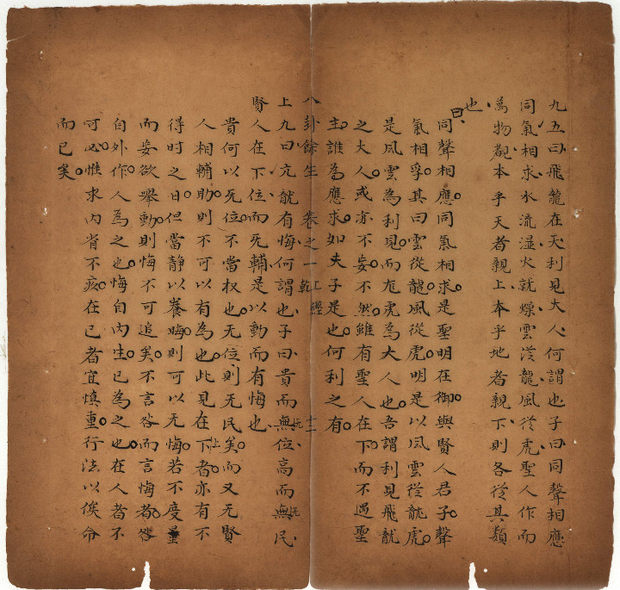 九五曰飛龍在天利見大人何謂也子曰同聲相應
同氣相求水流溼火就燥雲從龍風從虎聖人作而
萬物覩本乎天者親上本乎地者親下則各從其類
也
曰
同聲相應同氣相求是聖明在御與賢人君子聲
氣相孚其曰雲從龍風從虎明是以風雲從龍虎
是風雲為利見而龍虎為大人也吾謂利見飛龍
之大人或亦不妄不然雖有聖人在下而不遇聖
主誰為應求如夫子是也何利之有
八卦餘生 卷之一 乾 上經 十二
上九曰亢龍有悔何謂也子曰貴而無位高而無民
无 无
賢人在下位而无輔是以動而有悔也
貴何以无位不當权也无位則无民矣而又无賢
人相輔助則不可以有為也此見在下者亦有不
上
得時之日但當静以養晦則可以无悔若不度量
而妄欲舉動則悔不可追矣不言咎而言悔者咎
自外作人為之也悔自内生已為之也在人者不
可必惟求内省不疚在已者宜慎重行法以俟命
而已矣